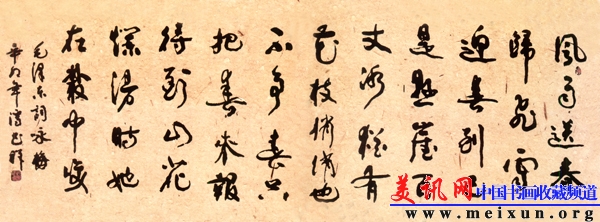 風雨送春
歸飛雪
迎春到已
是懸崖百
丈冰猶有
花枝俏俏也
不爭春只
把春來報
待到山花
爛漫時她
在叢中笑
毛澤東詞咏梅
辛卯年
美讯网 中国书画收藏频道
www.meixun.org